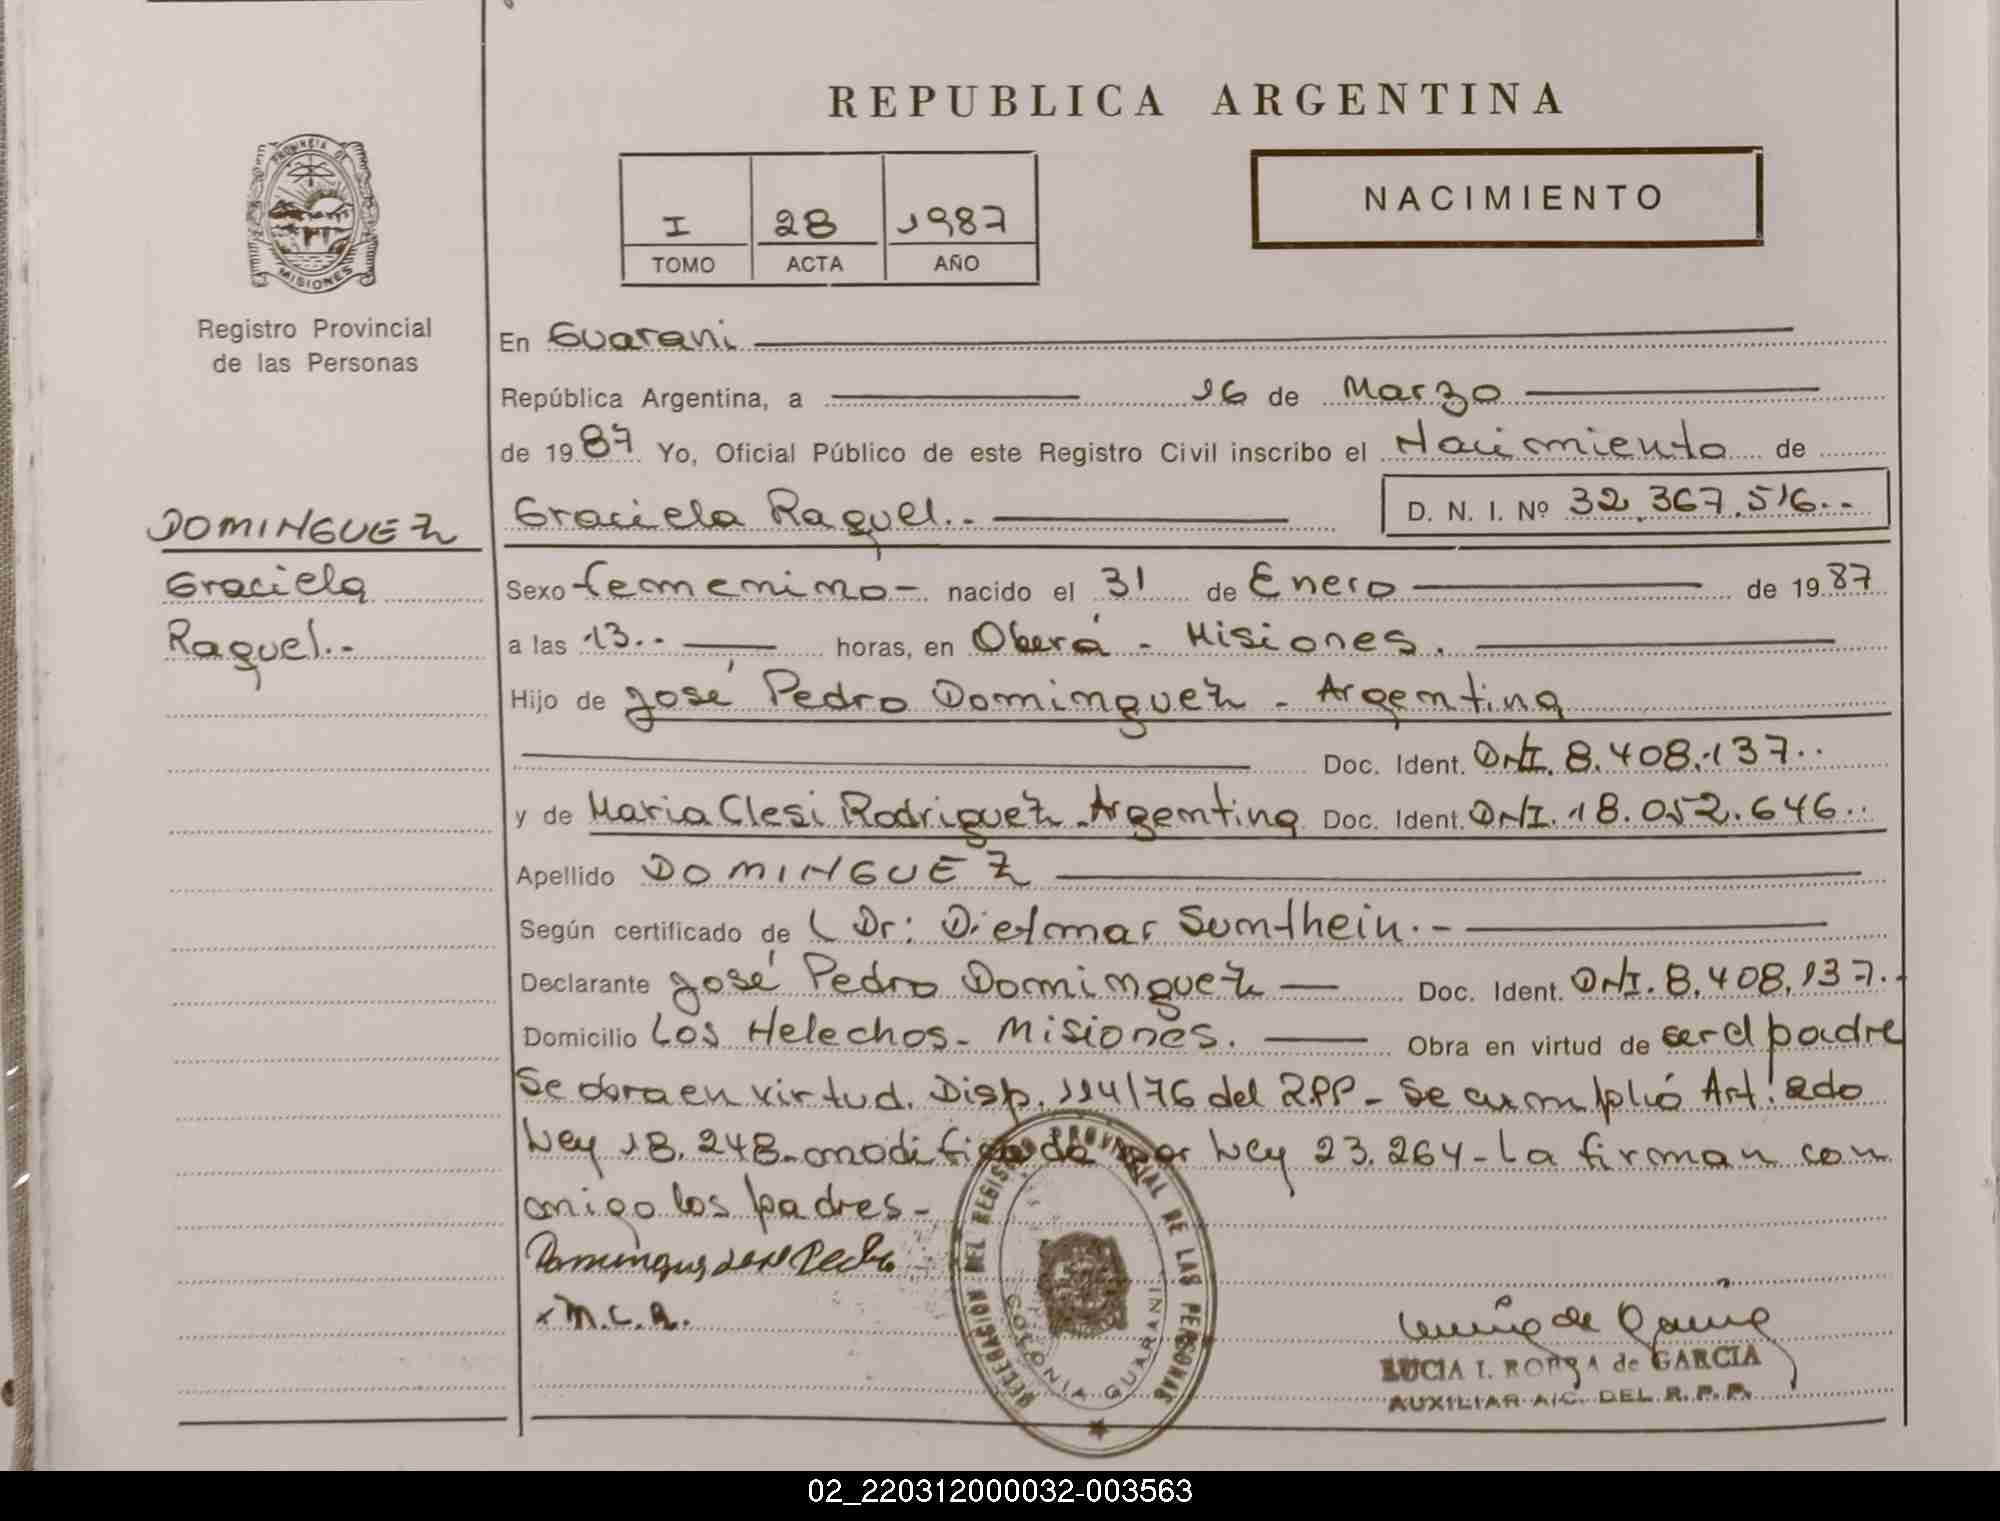 REPUBLICA ARGENTINA
NACIMIENTO
I 28 1987
TOMO ACTA AÑO
PROVINCIA DE
MISIONES
Registro Provincial
de las Personas
DOMINGUEZ
Graciela
Raquel.-
En Guarani
República Argentina, a 16 de Marzo
de 1987 Yo, Oficial Público de este Registro Civil inscribo el Nacimiento de
Graciela Raquel.- D. N. I. Nº 32.367.516..
Sexo femenino- nacido el 31 de Enero de 1987
a las 13.. horas, en Oberá - Misiones.
Hijo de José Pedro Dominguez - Argentina
Doc. Ident. DNI. 8.408.137..
y de Maria Clesi Rodriguez - Argentina Doc. Ident. DNI. 18.052.646..
Apellido DOMINGUEZ
Según certificado de Dr: Dietmar Sumthein.-
Declarante José Pedro Dominguez Doc. Ident. DNI. 8.408.137.-
Domicilio Los Helechos - Misiones. Obra en virtud de ser el padre
Se obra en virtud. Disp. 114/76 del RPP - Se cumplió Art. 2do
Ley 18.248. modificada por Ley 23.264 - La firman con
migo los padres -
x M.C.R.
DELEGACION DEL REGISTRO PROVINCIAL DE LAS PERSONAS
COLONIA GUARANI
LUCIA I. de GARCIA
AUXILIAR A/C. DEL R. P. P.
02_220312000032-003563